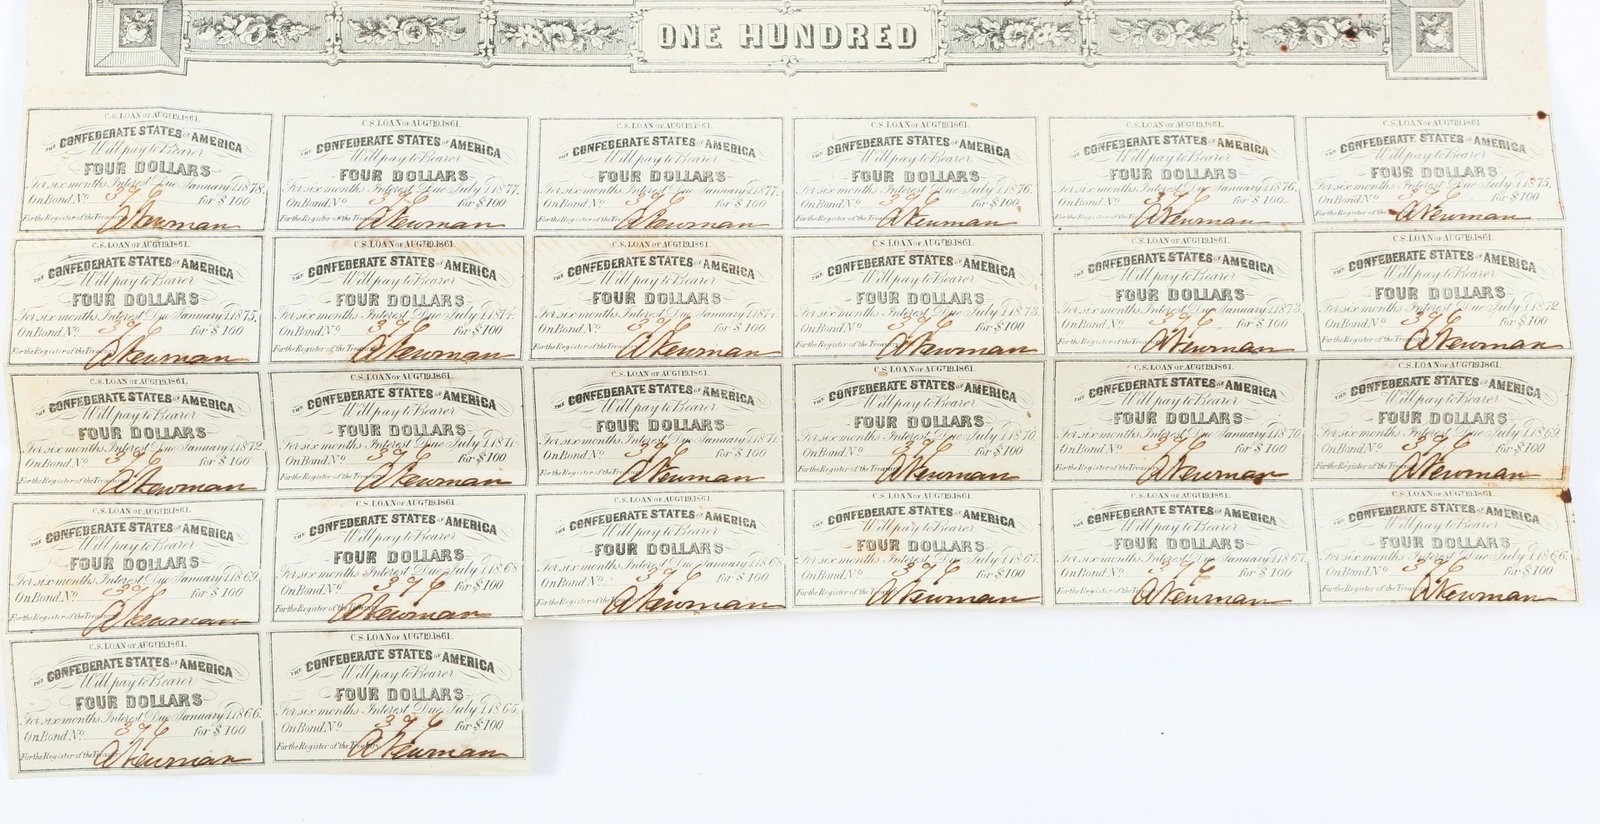 ONE HUNDRED
C.S. LOAN OF AUGT. 19.1861.
THE CONFEDERATE STATES OF AMERICA
Will pay to Bearer
FOUR DOLLARS
For six months Interest Due January 1.1878.
On Bond No. 376 for $100
For the Register of the Treasury A Newman
C.S. LOAN OF AUGT. 19.1861.
THE CONFEDERATE STATES OF AMERICA
Will pay to Bearer
FOUR DOLLARS
For six months Interest Due July 1.1877.
On Bond No. 376 for $100
For the Register of the Treasury A Newman
C.S. LOAN OF AUGT. 19.1861.
THE CONFEDERATE STATES OF AMERICA
Will pay to Bearer
FOUR DOLLARS
For six months Interest Due January 1.1877.
On Bond No. 376 for $100
For the Register of the Treasury A Newman
C.S. LOAN OF AUGT. 19.1861.
THE CONFEDERATE STATES OF AMERICA
Will pay to Bearer
FOUR DOLLARS
For six months Interest Due July 1.1876.
On Bond No. 376 for $100
For the Register of the Treasury A Newman
C.S. LOAN OF AUGT. 19.1861.
THE CONFEDERATE STATES OF AMERICA
Will pay to Bearer
FOUR DOLLARS
For six months Interest Due January 1.1876.
On Bond No. 376 for $100
For the Register of the Treasury A Newman
C.S. LOAN OF AUGT. 19.1861.
THE CONFEDERATE STATES OF AMERICA
Will pay to Bearer
FOUR DOLLARS
For six months Interest Due July 1.1875.
On Bond No. 376 for $100
For the Register of the Treasury A Newman
C.S. LOAN OF AUGT. 19.1861.
THE CONFEDERATE STATES OF AMERICA
Will pay to Bearer
FOUR DOLLARS
For six months Interest Due January 1.1875.
On Bond No. 376 for $100
For the Register of the Treasury A Newman
C.S. LOAN OF AUGT. 19.1861.
THE CONFEDERATE STATES OF AMERICA
Will pay to Bearer
FOUR DOLLARS
For six months Interest Due July 1.1874.
On Bond No. 376 for $100
For the Register of the Treasury A Newman
C.S. LOAN OF AUGT. 19.1861.
THE CONFEDERATE STATES OF AMERICA
Will pay to Bearer
FOUR DOLLARS
For six months Interest Due January 1.1874.
On Bond No. 376 for $100
For the Register of the Treasury A Newman
C.S. LOAN OF AUGT. 19.1861.
THE CONFEDERATE STATES OF AMERICA
Will pay to Bearer
FOUR DOLLARS
For six months Interest Due July 1.1873.
On Bond No. 376 for $100
For the Register of the Treasury A Newman
C.S. LOAN OF AUGT. 19.1861.
THE CONFEDERATE STATES OF AMERICA
Will pay to Bearer
FOUR DOLLARS
For six months Interest Due January 1.1873.
On Bond No. 376 for $100
For the Register of the Treasury A Newman
C.S. LOAN OF AUGT. 19.1861.
THE CONFEDERATE STATES OF AMERICA
Will pay to Bearer
FOUR DOLLARS
For six months Interest Due July 1.1872.
On Bond No. 376 for $100
For the Register of the Treasury A Newman
C.S. LOAN OF AUGT. 19.1861.
THE CONFEDERATE STATES OF AMERICA
Will pay to Bearer
FOUR DOLLARS
For six months Interest Due January 1.1872.
On Bond No. 376 for $100
For the Register of the Treasury A Newman
C.S. LOAN OF AUGT. 19.1861.
THE CONFEDERATE STATES OF AMERICA
Will pay to Bearer
FOUR DOLLARS
For six months Interest Due July 1.1871.
On Bond No. 376 for $100
For the Register of the Treasury A Newman
C.S. LOAN OF AUGT. 19.1861.
THE CONFEDERATE STATES OF AMERICA
Will pay to Bearer
FOUR DOLLARS
For six months Interest Due January 1.1871.
On Bond No. 376 for $100
For the Register of the Treasury A Newman
C.S. LOAN OF AUGT. 19.1861.
THE CONFEDERATE STATES OF AMERICA
Will pay to Bearer
FOUR DOLLARS
For six months Interest Due July 1.1870.
On Bond No. 376 for $100
For the Register of the Treasury A Newman
C.S. LOAN OF AUGT. 19.1861.
THE CONFEDERATE STATES OF AMERICA
Will pay to Bearer
FOUR DOLLARS
For six months Interest Due January 1.1870.
On Bond No. 376 for $100
For the Register of the Treasury A Newman
C.S. LOAN OF AUGT. 19.1861.
THE CONFEDERATE STATES OF AMERICA
Will pay to Bearer
FOUR DOLLARS
For six months Interest Due July 1.1869.
On Bond No. 376 for $100
For the Register of the Treasury A Newman
C.S. LOAN OF AUGT. 19.1861.
THE CONFEDERATE STATES OF AMERICA
Will pay to Bearer
FOUR DOLLARS
For six months Interest Due January 1.1869.
On Bond No. 376 for $100
For the Register of the Treasury A Newman
C.S. LOAN OF AUGT. 19.1861.
THE CONFEDERATE STATES OF AMERICA
Will pay to Bearer
FOUR DOLLARS
For six months Interest Due July 1.1868.
On Bond No. 376 for $100
For the Register of the Treasury A Newman
C.S. LOAN OF AUGT. 19.1861.
THE CONFEDERATE STATES OF AMERICA
Will pay to Bearer
FOUR DOLLARS
For six months Interest Due January 1.1868.
On Bond No. 376 for $100
For the Register of the Treasury A Newman
C.S. LOAN OF AUGT. 19.1861.
THE CONFEDERATE STATES OF AMERICA
Will pay to Bearer
FOUR DOLLARS
For six months Interest Due July 1.1867.
On Bond No. 376 for $100
For the Register of the Treasury A Newman
C.S. LOAN OF AUGT. 19.1861.
THE CONFEDERATE STATES OF AMERICA
Will pay to Bearer
FOUR DOLLARS
For six months Interest Due January 1.1867.
On Bond No. 376 for $100
For the Register of the Treasury A Newman
C.S. LOAN OF AUGT. 19.1861.
THE CONFEDERATE STATES OF AMERICA
Will pay to Bearer
FOUR DOLLARS
For six months Interest Due July 1.1866.
On Bond No. 376 for $100
For the Register of the Treasury A Newman
C.S. LOAN OF AUGT. 19.1861.
THE CONFEDERATE STATES OF AMERICA
Will pay to Bearer
FOUR DOLLARS
For six months Interest Due January 1.1866.
On Bond No. 376 for $100
For the Register of the Treasury A Newman
C.S. LOAN OF AUGT. 19.1861.
THE CONFEDERATE STATES OF AMERICA
Will pay to Bearer
FOUR DOLLARS
For six months Interest Due July 1.1865.
On Bond No. 376 for $100
For the Register of the Treasury A Newman